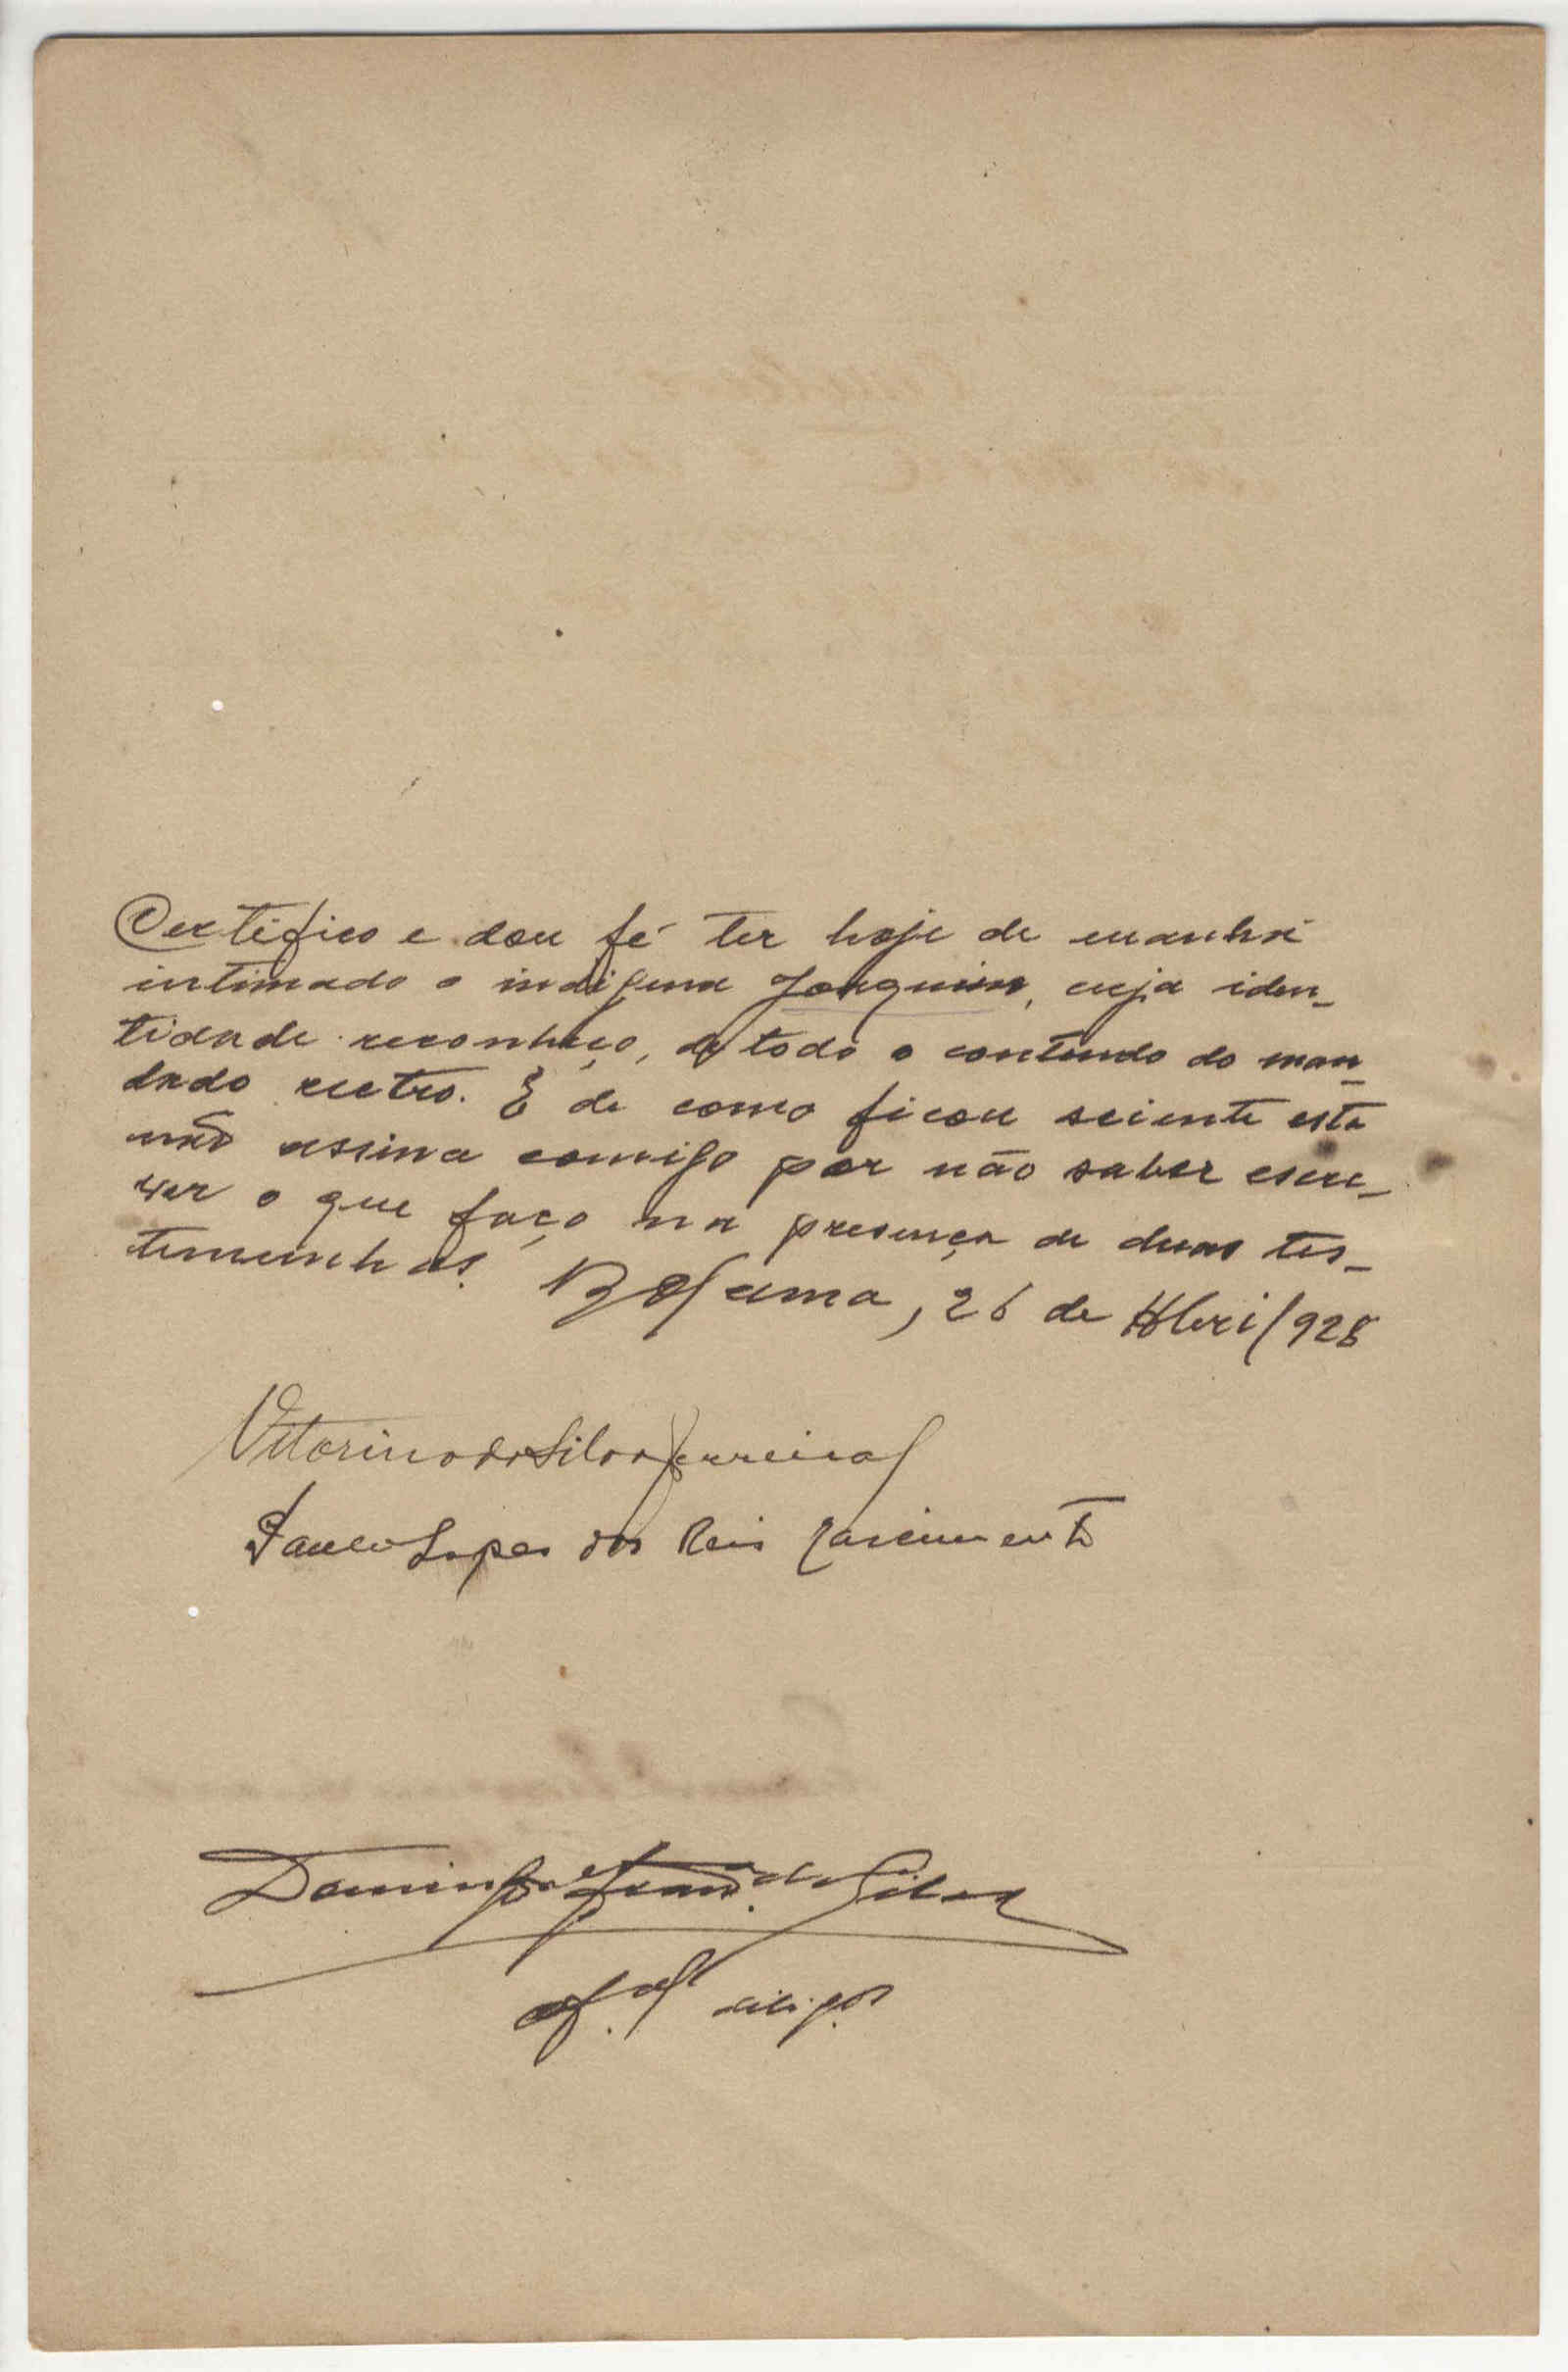 Certifico e dou fé ter hoje de manhã
intimado o indigena Joaquim, cuja iden-
tidade reconheço, de todo o contendo do man-
dado retro. E de como ficou sciente esta
não assina comigo por não saber escre-
ver o que faço na presença de duas tes-
temunhas. Bolama, 26 de Abril/928
Vitorino da Silva Ferreira
Paulo Lopes dos Reis Nascimento
Domingos da Silva
of.al dilig.as